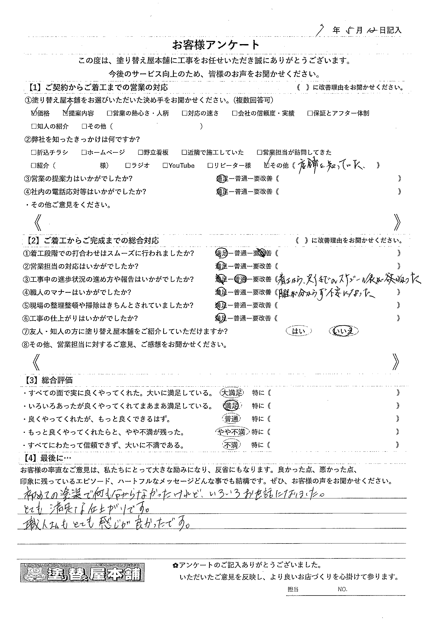 7 年 5 月 12 日記入
お客様アンケート
この度は、塗り替え屋本舗に工事をお任せいただき誠にありがとうございます。
今後のサービス向上のため、皆様のお声をお聞かせください。
【1】ご契約からご着工までの営業の対応 ( )に改善理由をお聞かせください。
①塗り替え屋本舗をお選びいただいた決め手をお聞かせください。(複数回答可)
☑価格 ☑提案内容 □営業の熱心さ・人柄 □対応の速さ □会社の信頼度・実績 □保証とアフター体制
□知人の紹介 □その他( )
②弊社を知ったきっかけは何ですか?
□折込チラシ □ホームページ □野立看板 □近隣で施工していた □営業担当が訪れてきた
□紹介( 様) □ラジオ □YouTube □リピーター様 ☑その他(店舗で知っていた )
③営業の提案力はいかがでしたか? 満足ー普通ー要改善( )
④社内の電話応対等はいかがでしたか? 満足ー普通ー要改善( )
・その他ご意見をください。
《 》
【2】ご着工からご完成までの総合対応 ( )に改善理由をお聞かせください。
①着工段階での打合わせはスムーズに行われましたか? 満足ー普通ー要改善( )
②営業担当の対応はいかがでしたか? 満足ー普通ー要改善( )
③工事中の進歩状況の進め方や報告はいかがでしたか? 満足ー普通ー要改善(
④職人のマナーはいかがでしたか? 満足ー普通ー要改善(
⑤現場の整理整頓や掃除はきちんとされていましたか? 満足ー普通ー要改善( )
⑥工事の仕上がりはいかがでしたか? 満足ー普通ー要改善( )
⑦友人・知人の方に塗り替え屋本舗をご紹介していただけますか? はい いいえ
⑧その他、営業担当に対するご意見、ご感想をお聞かせください。
《 》
【3】総合評価
・すべての面で実に良くやってくれた。大いに満足している。 大満足 特に( )
・いろいろあったが良くやってくれてまあまあ満足している。 満足 特に( )
・良くやってくれたが、もっと良くできるはず。 普通 特に( )
・もっと良くやってくれたらと、やや不満が残った。 やや不満 特に( )
・すべてにわたって信頼できず、大いに不満である。 不満 特に( )
【4】最後に…
お客様の率直なご意見は、私たちにとって大きな励みになり、反省にもなります。良かった点、悪かった点、
印象に残っているエピソード、ハートフルなメッセージどんな事でも結構です。ぜひ、お客様の声をお聞かせください。
初めての塗装で何も分からなかったけれど、いろいろお世話になりました。
とても満足な仕上がりです。
職人さんもとても感じが良かったです。
塗替え屋本舗
✿アンケートのご記入ありがとうございました。
いただいたご意見を反映し、より良いお店づくりを心掛けて参ります。
担当 NO.